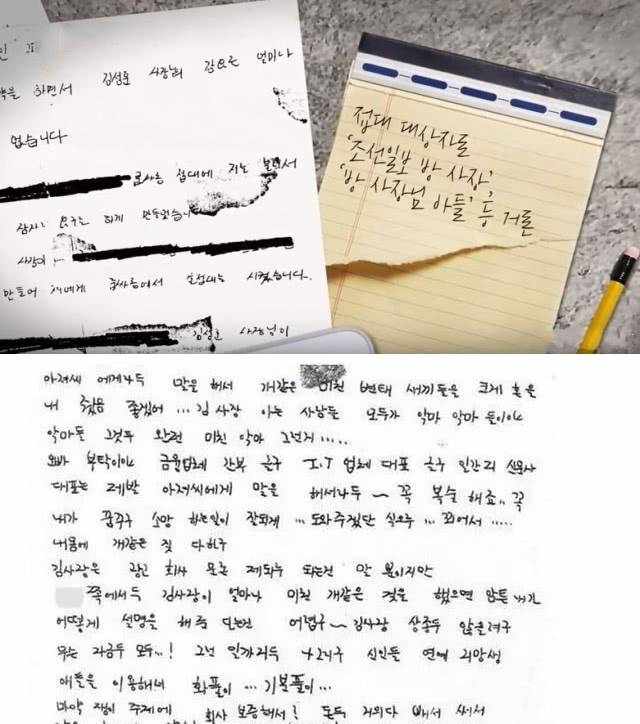 인 교
약을 하면서 김성훈 사장님의 강요로 얼마나
없습니다
룸사롱 접대에 저는 불려서
잠자리 요구를 하게 만들었습니
사장이
만들어 저에게 룸사롱에서 술접대를 시켰습니다.
김성훈 사장님이
접대 대상자를
'조선일보 방 사장'
'방 사장님 아들' 등 거론
아저씨 에게나두 말을 해서 개같은 미친 변태 새끼들을 크게 혼을
내 줬음 좋겠어 ... 김 사장 아는 사람들 모두가 악마 악마 들이야
악마들 그것두 완전 미친 악마 그런거 .....
오빠 부탁이야 금융업체 간부 말구 I.T 업체 대표 말구 일간지 신문사
대표는 제발 아저씨에게 말을 해서나두 ~ 꼭 복수 해죠.. 꼭
내가 꿈꾸구 소망 하는일이 잘되게 ... 도와주겠단 식으루 ... 꾀어서 .....
내몸에 개같은 짓 다하구
김사장은 광고 회사 문은 제대루 되는건 말 뿐이지만
쪽에서두 김사장이 얼마나 미친 개같은 것을 했으면 암튼 내가
어떻게 설명을 해 줘 다는건 어렵구 ~ 김사장 상종두 않을려구
무는 지금두 모두 ...! 그런 일까리두 신인들 연예 지망생
애들을 이용해서 화풀이 ... 기분풀이 ...
마약 쟁이 주제에 회사 보증해서! 돈두 거의다 빼서 써서